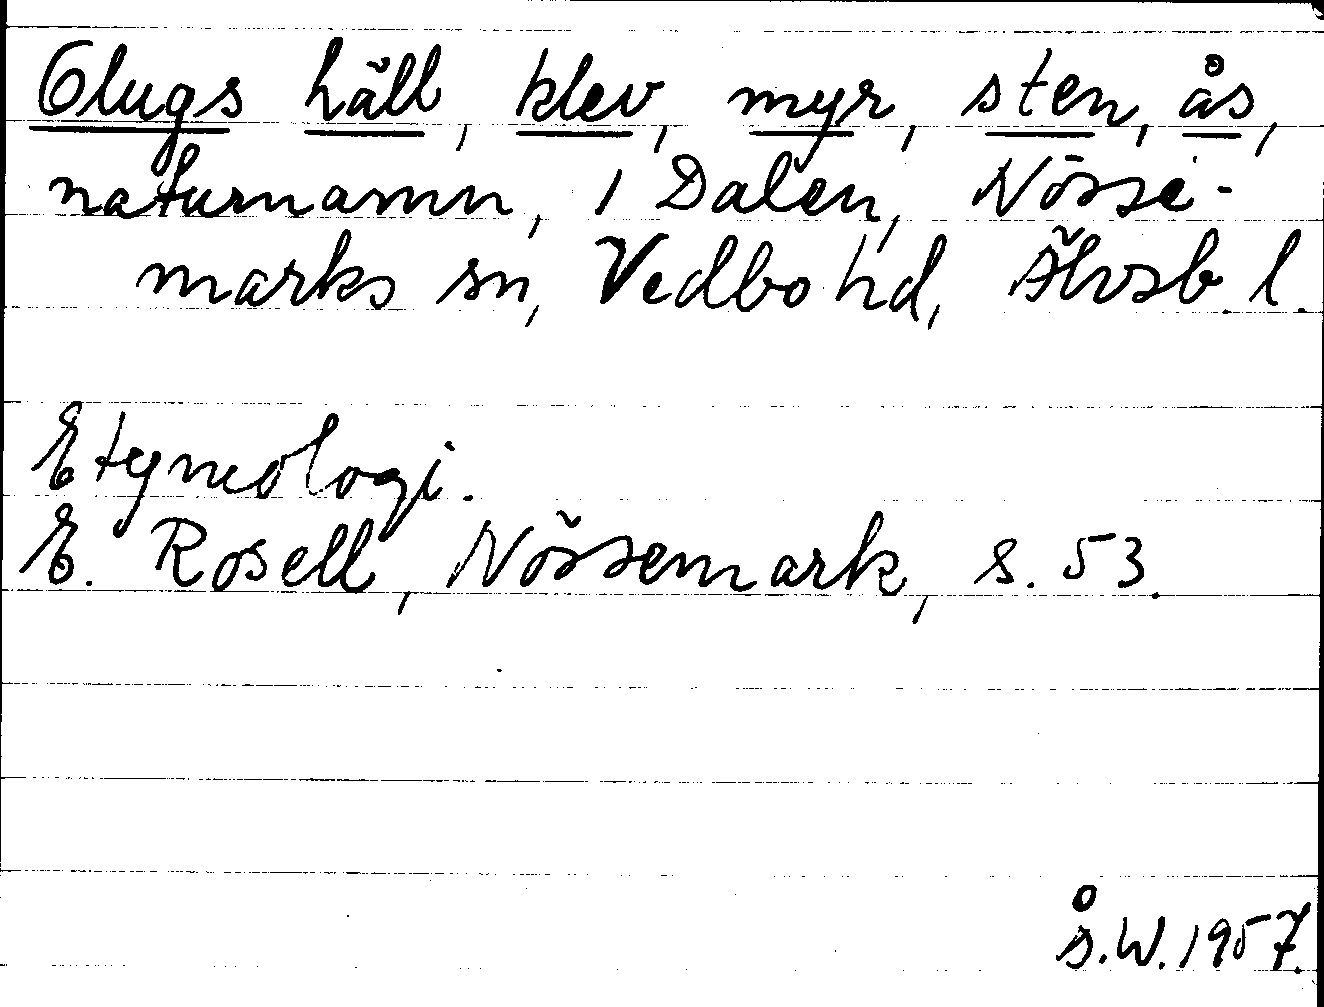 Olugs häll, klev, myr, sten, ås,
naturnamn, i Dalen, Nössе-
marks sn, Vedbo hd, Älvsb. l.
Etymologi.
E. Rosell, Nössemark, s. 53.
Å.W. 1957.